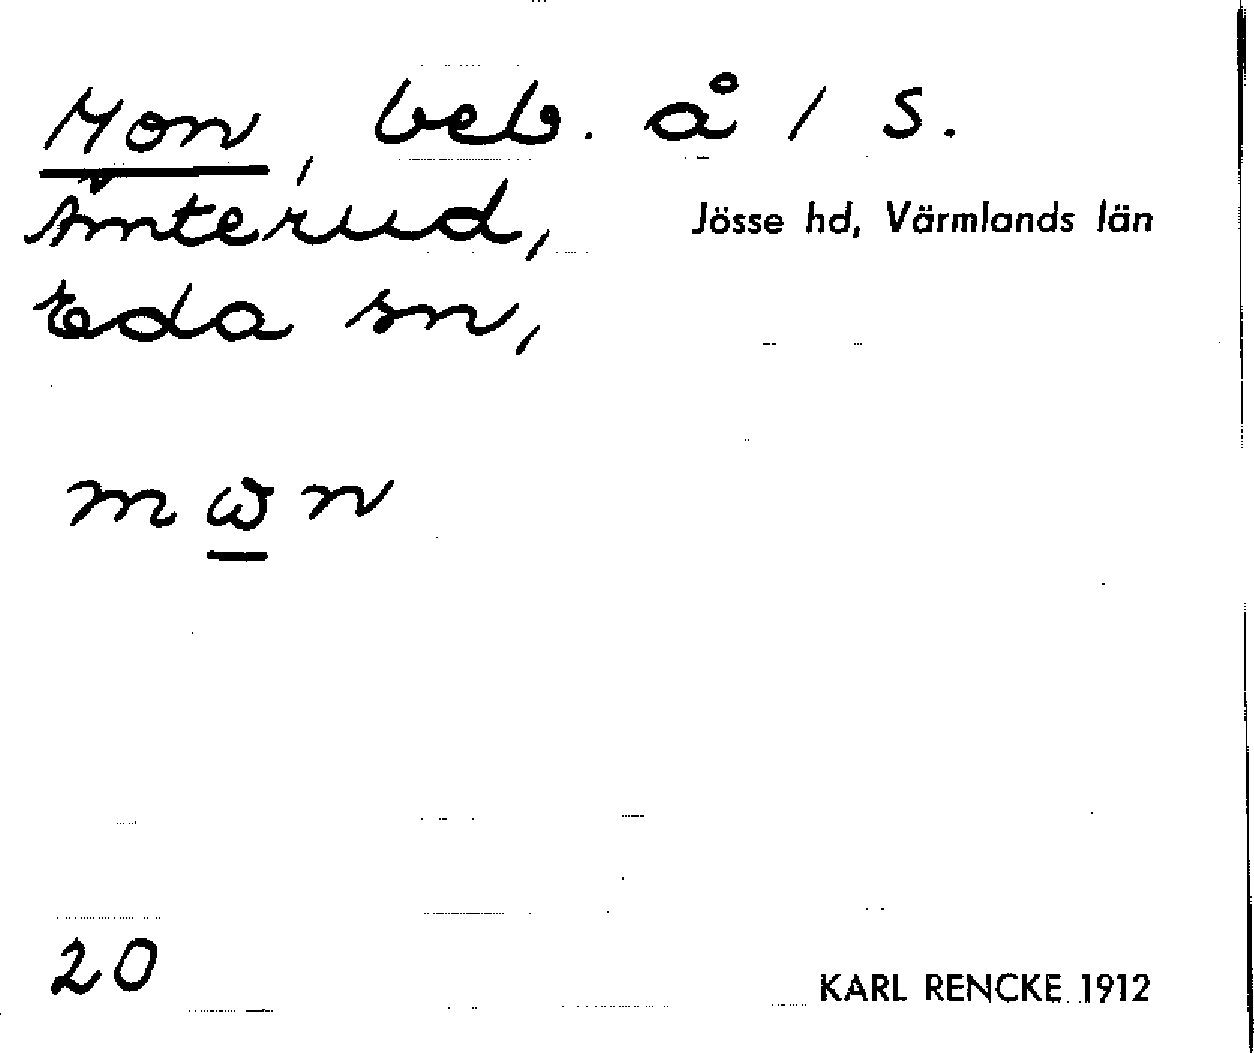 Mon, beb. å / S.
Ämterud,
Jösse hd, Värmlands län
Eda sn,
20
KARL RENCKE 1912